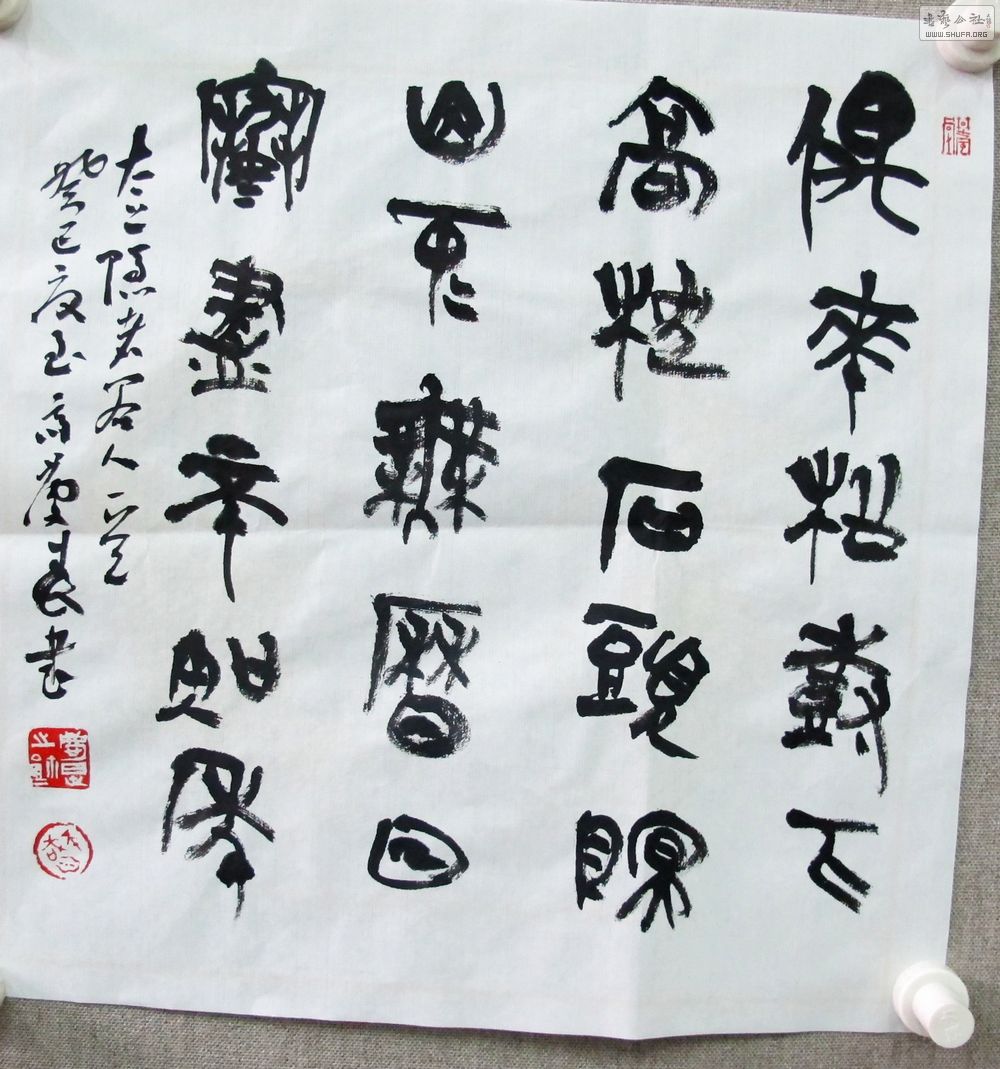 偶來松樹下
高枕石頭瞑
山中無曆日
寒盡不知年
太上隱者答人
癸巳夏至高慶春書
書藝公社
WWW.SHUFA.ORG